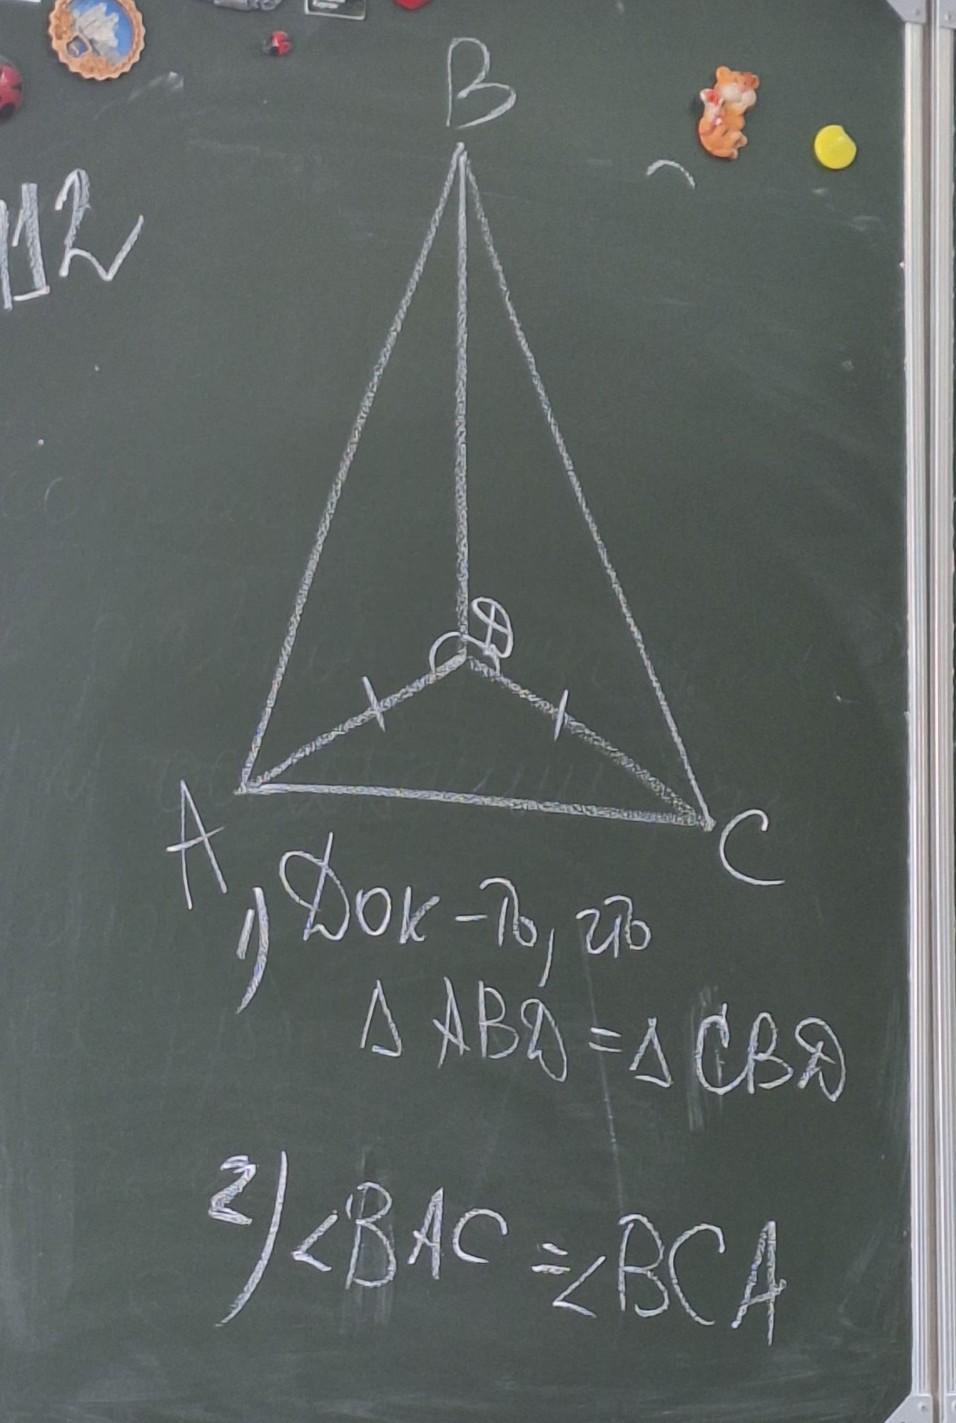 112
B
D
A
C
1) Док-ть, что
Δ ABD = Δ CBD
2) ∠BAC = ∠BCA